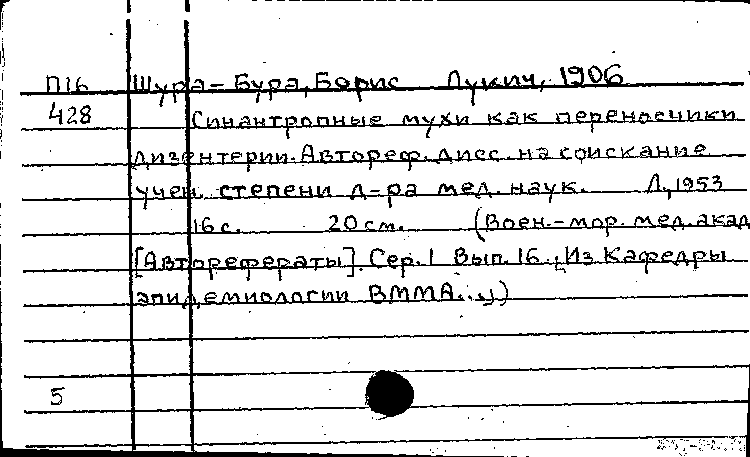 П16 Шура-Бура, Борис Лукич, 1906
428 Синантропные мухи как переносчики
дизентерии. Автореф. дисс. на соискание
учен. степени д-ра мед. наук. Л., 1953
16 с. 20 см. (Воен.-мор. мед. акад
[Авторефераты]. Сер. 1 Вып. 16. [Из Кафедры
эпидемиологии ВММА...])
5